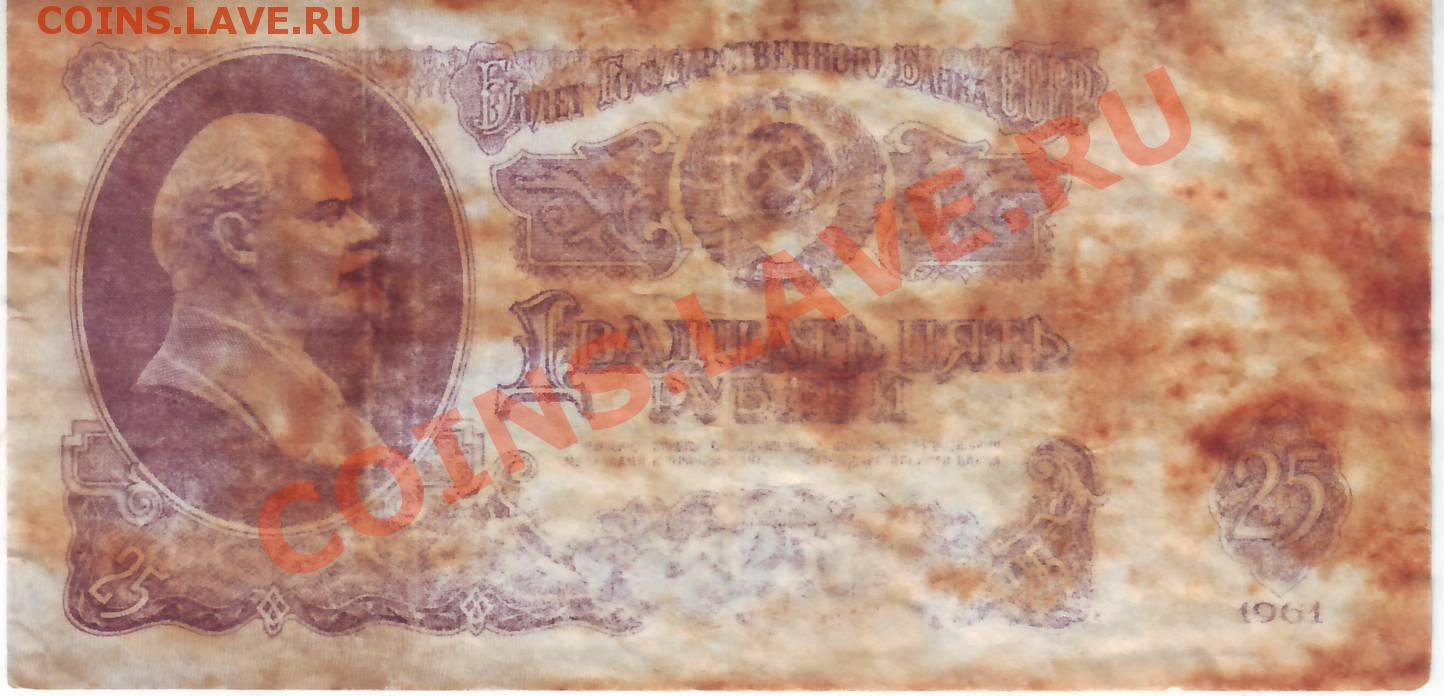 COINS.LAVE.RU
Билет Государственного Банка СССР
COINS.LAVE.RU
Двадцать пять
рублей
25
25
1961